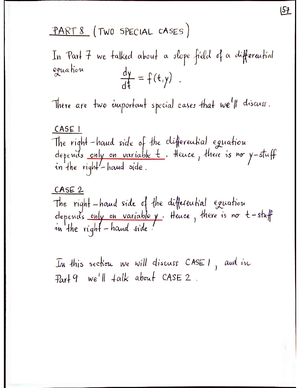 51
PART 8 (TWO SPECIAL CASES)
In Part 7 we talked about a slope field of a differential
equation
dy/dt = f(t,y) .
There are two important special cases that we'll discuss.
CASE 1
The right-hand side of the differential equation
depends only on variable t. Hence, there is no y-stuff
in the right-hand side.
CASE 2
The right-hand side of the differential equation
depends only on variable y. Hence, there is no t-stuff
in the right-hand side.
In this section we will discuss CASE 1, and in
Part 9 we'll talk about CASE 2.